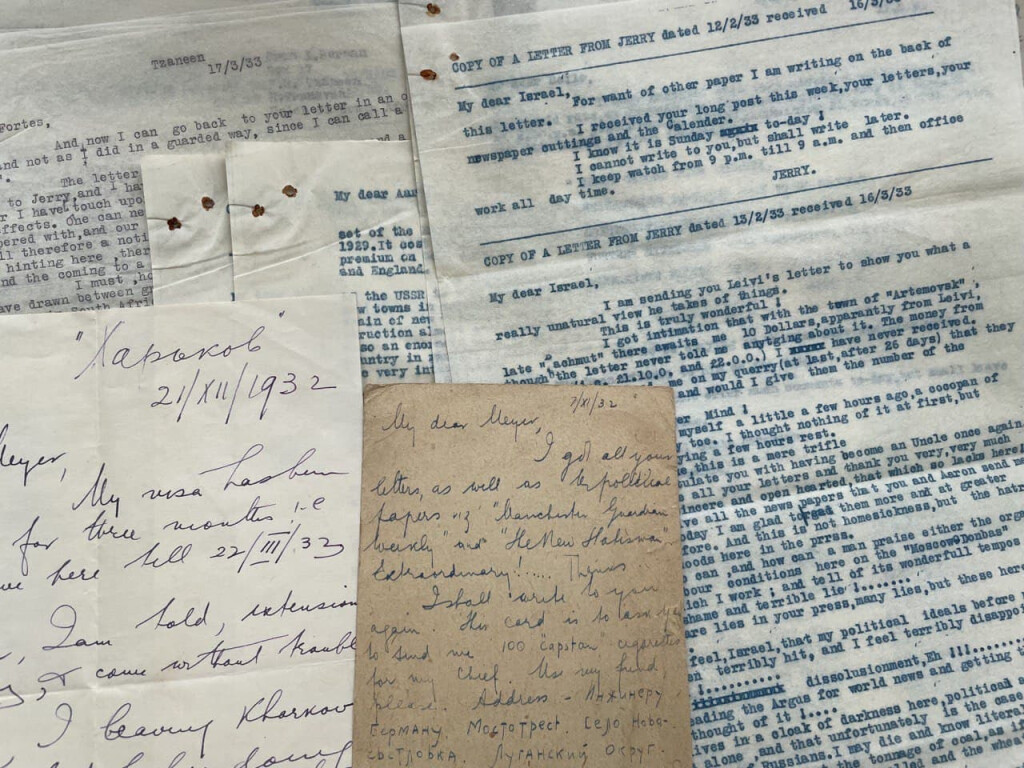 Tzaneen
17/3/33
Fortes,
And now I can go back to your letter in an o
nd not as I did in a guarded way, since I can call a
The letter
to Jerry, and I ha
r I have touch upo
ffects. One can ne
pered with, and our
ll therefore a noti
hinting here, ther
nd the coming to a
I must, ho
ave drawn between g
My dear Aar
set of the
1929. It cos
premium on
and England.
the USSR
w towns i
ain of new
truction al
so an eno
antry in
very inte
COPY OF A LETTER FROM JERRY dated 12/2/33 received 16/3/33
My dear Israel,
For want of other paper I am writing on the back of
this letter.
I received your long post this week, your letters, your
newspaper cuttings and the Calender.
I know it is Sunday to-day !
I cannot write to you, but shall write later.
I keep watch from 9 p.m. till 9 a.m. and then office
work all day time.
JERRY.
COPY OF A LETTER FROM JERRY dated 13/2/33 received 16/3/33
My dear Israel,
I am sending you Leivi's letter to show you what a
really unnatural view he takes of things.
This is truly wonderful !
I got intimation that with the town of "Artemovsk",
late "achmut" there awaits me 10 Dollars, apparantly from Leivi,
though the letter never told me anytging about it. The money from
£1.10.0, and £2.0.0.) I have never received
me on my querry (at last, after 26 days) that they
and would I give them the number of the
Mind !
myself a little a few hours ago, a cocopan of
too. I thought nothing of it at first, but
ying a few hours rest.
ule, this is a mere trifle
ulate you with having become an Uncle once again
all your letters and thank you very, very much
incere and open hearted, that which so lacks here!
ve all the news papers that you and Aaron send me
day I am glad to read them more and at greater
fore. And this is not homesickness, but the hatr
oods here in the prrss.
can, and how can a man praise either the orga
our conditions here on the "Moscow-Donbas"
ich I work ; and tell of its wonderfull tempos
shame and terrible lie!.......
are lies in your press, many lies, but these here
feel, Israel, that my political ideals before
n terribly hit, and I feel terribly disappo
dissolusionment, Eh !!!.......
eading the Argus for world news and getting t
thought of it !....
ives in a cloak of darkness here, political a
alone, and that unfortunately is the case
g Russians. I may die and know literal
at the tonnage of coal, as i
lled and the whea
"Харьков"
21/XII/1932
Meyer,
My visa has been
for three months i.e
here till 22/III/33
I am told, extension
come without trouble
I leaving Kharkov
7/XI/32
My dear Meyer,
I got all your
letters, as well as the political
papers "Manchester Guardian
Weekly" and "The New
Extraordinary!.... Thanks
I shall write to you
again. This card is to ask you
to send me 100 "Capstan" cigarettes
for my Chief. Use my fund
please. Address - Инжинеру
Герману. Мостотрест. Село Ново-
Луганский Округ.